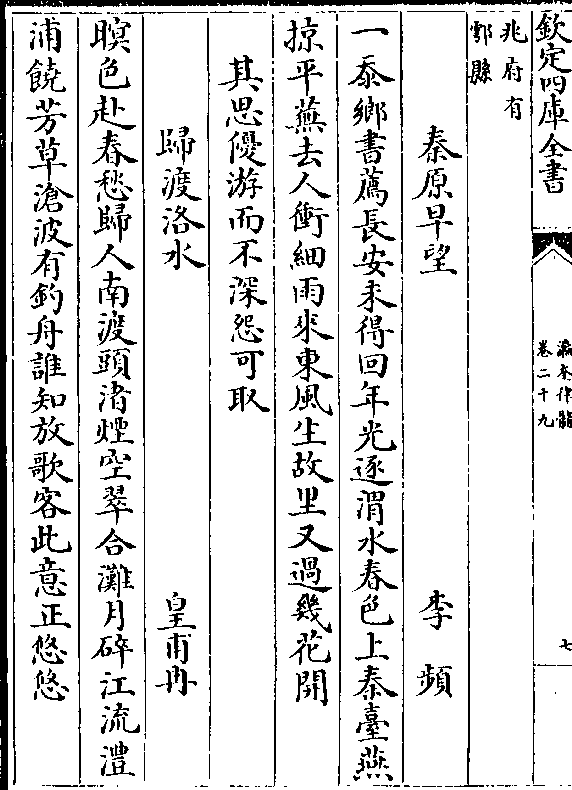 欽定四庫全書
瀛奎律髓
卷二十九
七
兆府有
鄠縣
秦原早望
李頻
一忝鄉書薦長安未得回年光逐渭水春色上秦臺燕
掠平蕪去人衝細雨來東風生故里又過幾花開
其思優游而不深怨可取
歸渡洛水
皇甫冉
暝色赴春愁歸人南渡頭渚煙空翠合灘月碎江流澧
浦饒芳草滄波有釣舟誰知放歌客此意正悠悠